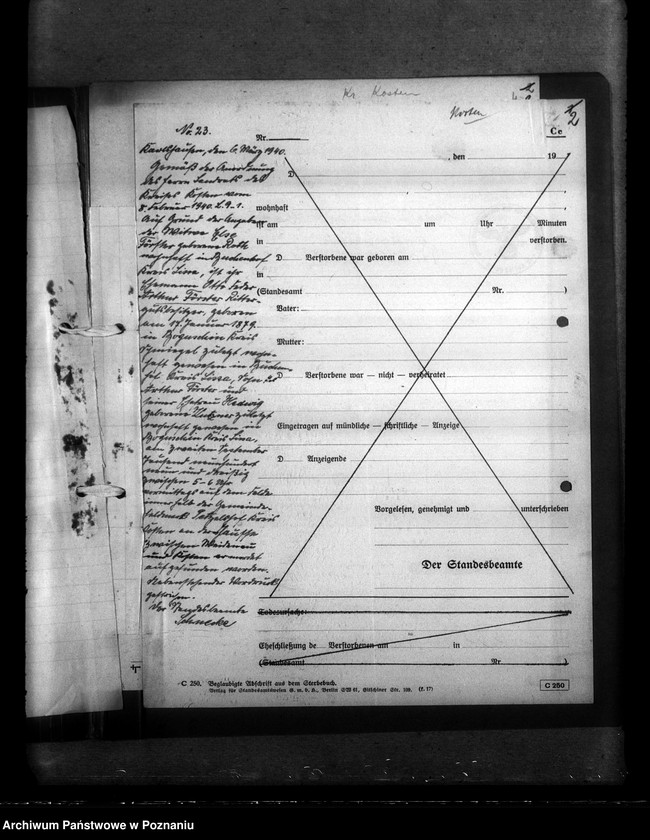 Kr. Kosten
Kosten
2
Ce
No. 23.
Karlshausen, den 6. März 1940.
Gemäß der Anordnung
des Herrn Landrats des
Kreises Kosten vom
8. Februar 1940.
Auf Grund der Angaben
der Witwe Else
Förster geborene Roth
wohnhaft in
Kreis Lissa, ist ihr
Ehemann Otto
Arthur Förster Ritter-
gutsbesitzer, geboren
am 17. Januar 1879.
in Kreis
Schmiegel zuletzt wohn-
haft gewesen in
Kreis Lissa, Sohn des
Arthur Förster und
seiner Ehefrau Hedwig
geborene zuletzt
wohnhaft gewesen in
Kreis Lissa,
am zweiten September
tausend neunhundert
neun und dreißig
zwischen 5-6 Uhr
vormittags auf dem Felde
innerhalb der Gemeinde-
Kreis
Kosten an der Chaussee
zwischen
und Kosten ermordet
aufgefunden worden.
Nebenstehender Vordruck
gestrichen.
Der Standesbeamte
Schnecke
Nr.
, den 19
D
wohnhaft
ist am um Uhr Minuten
in verstorben.
D Verstorbene war geboren am
in
(Standesamt Nr. )
Vater:
Mutter:
D Verstorbene war — nicht — verheiratet
Eingetragen auf mündliche — schriftliche — Anzeige
D Anzeigende
Vorgelesen, genehmigt und unterschrieben
Der Standesbeamte
Todesursache:
Eheschließung de Verstorbenen am in
(Standesamt Nr. )
C 250. Beglaubigte Abschrift aus dem Sterbebuch.
Verlag für Standesamtswesen G. m. b. H., Berlin SW 61, Gitschiner Str. 109. (f. 17)
C 250
Archiwum Państwowe w Poznaniu